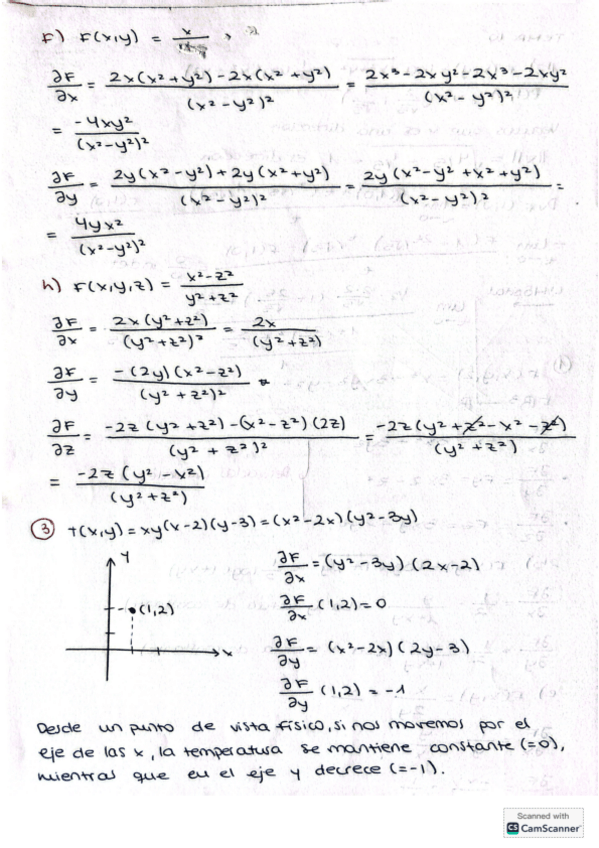 F) F(x,y) = x
∂F/∂x = (2x(x²+y²) - 2x(x²+y²))/(x²-y²)² = (2x³-2xy²-2x³-2xy²)/(x²-y²)²
= -4xy²/(x²-y²)²
∂F/∂y = (2y(x²-y²)+2y(x²+y²))/(x²-y²)² = (2y(x²-y²+x²+y²))/(x²-y²)² =
= 4yx²/(x²-y²)²
h) F(x,y,z) = (x²-z²)/(y²+z²)
∂F/∂x = (2x(y²+z²))/(y²+z²)² = 2x/(y²+z²)
∂F/∂y = (-(2y)(x²-z²))/(y²+z²)²
∂F/∂z = (-2z(y²+z²)-(x²-z²)(2z))/(y²+z²)² = (-2z(y²+z²-x²-z²))/(y²+z²)
= (-2z(y²-x²))/(y²+z²)
③ T(x,y) = xy(x-2)(y-3) = (x²-2x)(y²-3y)
y
(1,2)
x
∂F/∂x = (y²-3y)(2x-2)
∂F/∂x (1,2) = 0
∂F/∂y = (x²-2x)(2y-3)
∂F/∂y (1,2) = -1
Desde un punto de vista físico, si nos movemos por el
eje de las x, la temperatura se mantiene constante (=0),
mientras que en el eje y decrece (=-1).
Scanned with
CS CamScanner